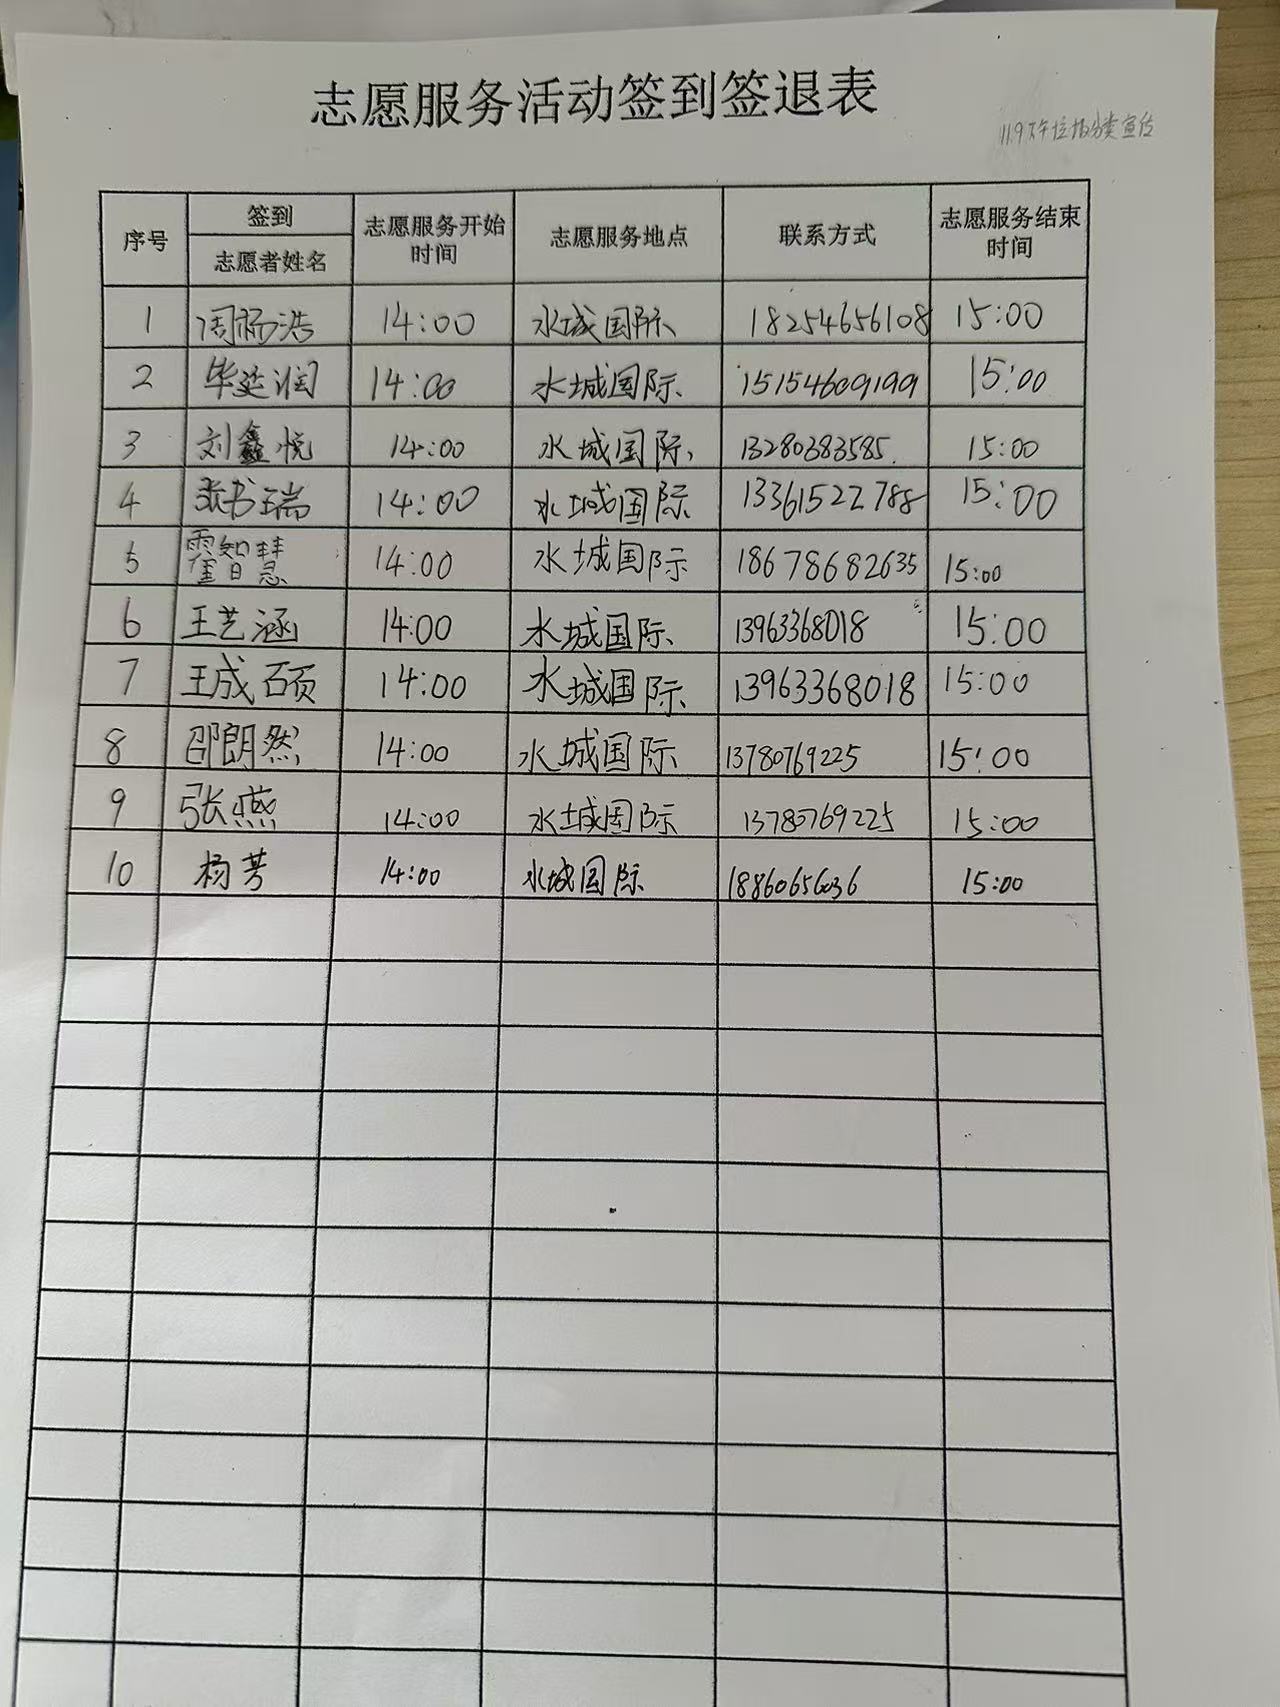 志愿服务活动签到签退表
11.9下午垃圾分类宣传
序号 签到 志愿者姓名 志愿服务开始时间 志愿服务地点 联系方式 志愿服务结束时间
1 周杨浩 14:00 水城国际 18254656108 15:00
2 毕延润 14:00 水城国际 15154609199 15:00
3 刘鑫悦 14:00 水城国际 13280383585 15:00
4 张书瑞 14:00 水城国际 13361522788 15:00
5 霍智慧 14:00 水城国际 18678682635 15:00
6 王艺涵 14:00 水城国际 13963368018 15:00
7 王成硕 14:00 水城国际 13963368018 15:00
8 邵朗然 14:00 水城国际 13780769225 15:00
9 张燕 14:00 水城国际 13780769225 15:00
10 杨芳 14:00 水城国际 18860656036 15:00